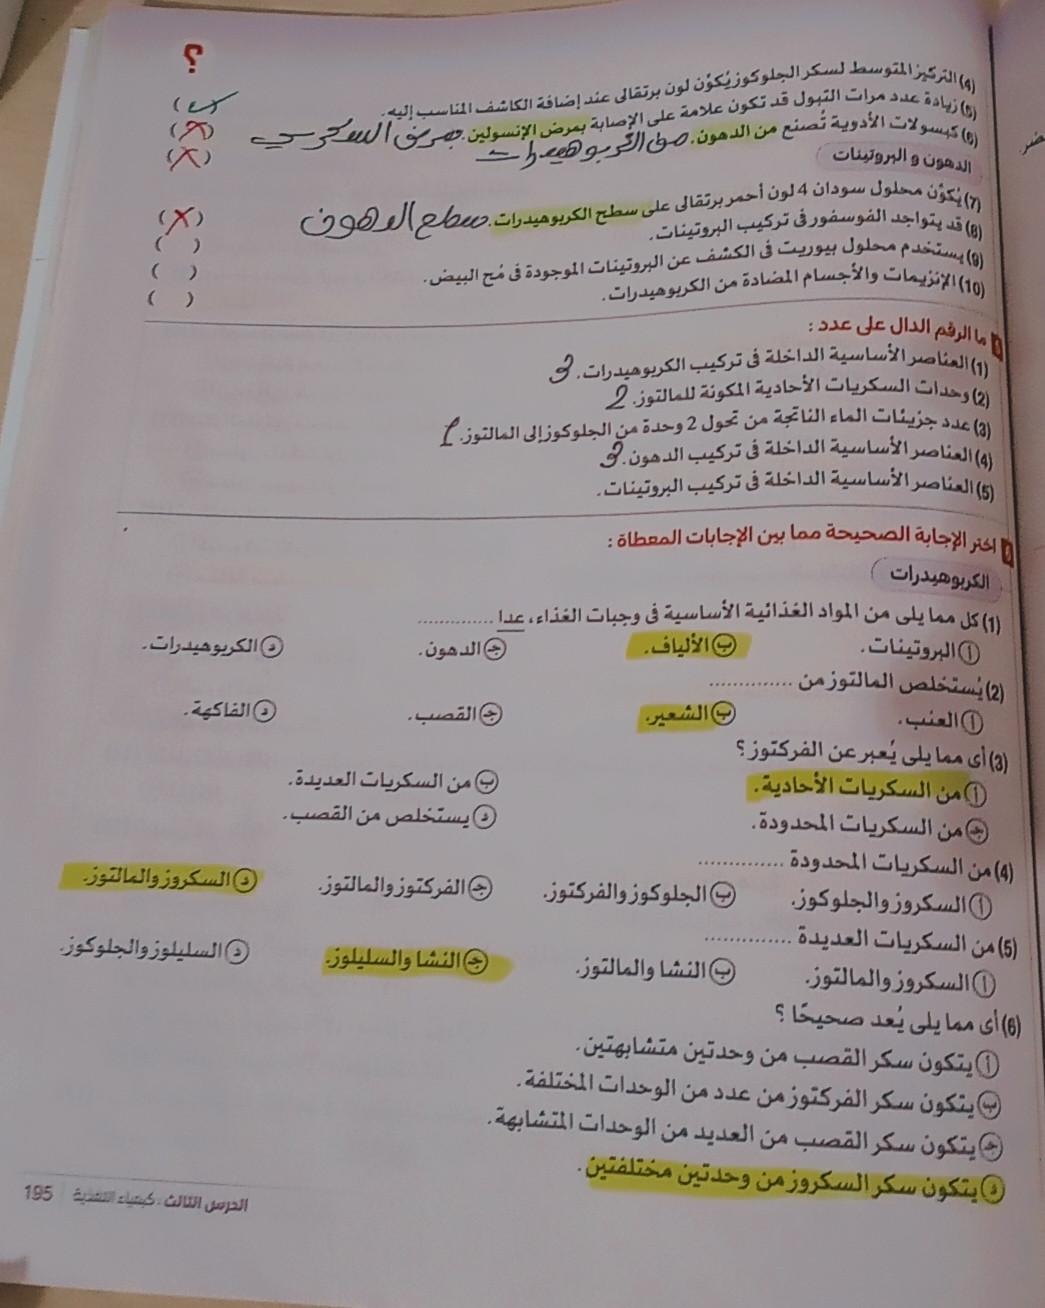 ؟
(4) التركيز المتوسط لسكر الجلوكوز يُكوِّن لون برتقالى عند إضافة الكاشف المناسب إليه. (✓)
(5) زيادة عدد مرات التبول قد تكون علامة على الإصابة بمرض الإنسولين. مرض السكرى (✗)
(6) كبسولات الأدوية تُصنع من الدهون. من الكربوهيدرات (✗)
الدهون و البروتينات
(7) يُكوِّن محلول سودان 4 لون أحمر برتقالى على سطح الكربوهيدرات. سطح الدهون (✗)
(8) قد يتواجد الفوسفور فى تركيب البروتينات. ( )
(9) يستخدم محلول بيوريت فى الكشف عن البروتينات الموجودة فى مُح البيض. ( )
(10) الإنزيمات والأجسام المضادة من الكربوهيدرات. ( )
ما الرقم الدال على عدد :
(1) العناصر الأساسية الداخلة فى تركيب الكربوهيدرات. 3
(2) وحدات السكريات الأحادية المكونة للمالتوز. 2
(3) عدد جزيئات الماء الناتجة من تحول 2 وحدة من الجلوكوز إلى المالتوز. 1
(4) العناصر الأساسية الداخلة فى تركيب الدهون. 3
(5) العناصر الأساسية الداخلة فى تركيب البروتينات.
اختر الإجابة الصحيحة مما بين الإجابات المعطاة :
الكربوهيدرات
(1) كل مما يلى من المواد الغذائية الأساسية فى وجبات الغذاء، عدا ..............
أ البروتينات. ب الألياف. ج الدهون. د الكربوهيدرات.
(2) يُستخلص المالتوز من ..............
أ العنب. ب الشعير. ج القصب. د الفاكهة.
(3) أى مما يلى يُعبر عن الفركتوز ؟
أ من السكريات الأحادية. ب من السكريات العديدة.
ج من السكريات المحدودة. د يستخلص من القصب.
(4) من السكريات المحدودة ..............
أ السكروز والجلوكوز. ب الجلوكوز والفركتوز. ج الفركتوز والمالتوز. د السكروز والمالتوز.
(5) من السكريات العديدة ..............
أ السكروز والمالتوز. ب النشا والمالتوز. ج النشا والسليلوز. د السليلوز والجلوكوز.
(6) أى مما يلى يُعد صحيحًا ؟
أ يتكون سكر القصب من وحدتين متشابهتين.
ب يتكون سكر الفركتوز من عدد من الوحدات المختلفة.
ج يتكون سكر القصب من العديد من الوحدات المتشابهة.
د يتكون سكر السكروز من وحدتين مختلفتين.
الدرس الثالث : كيمياء التغذية 195